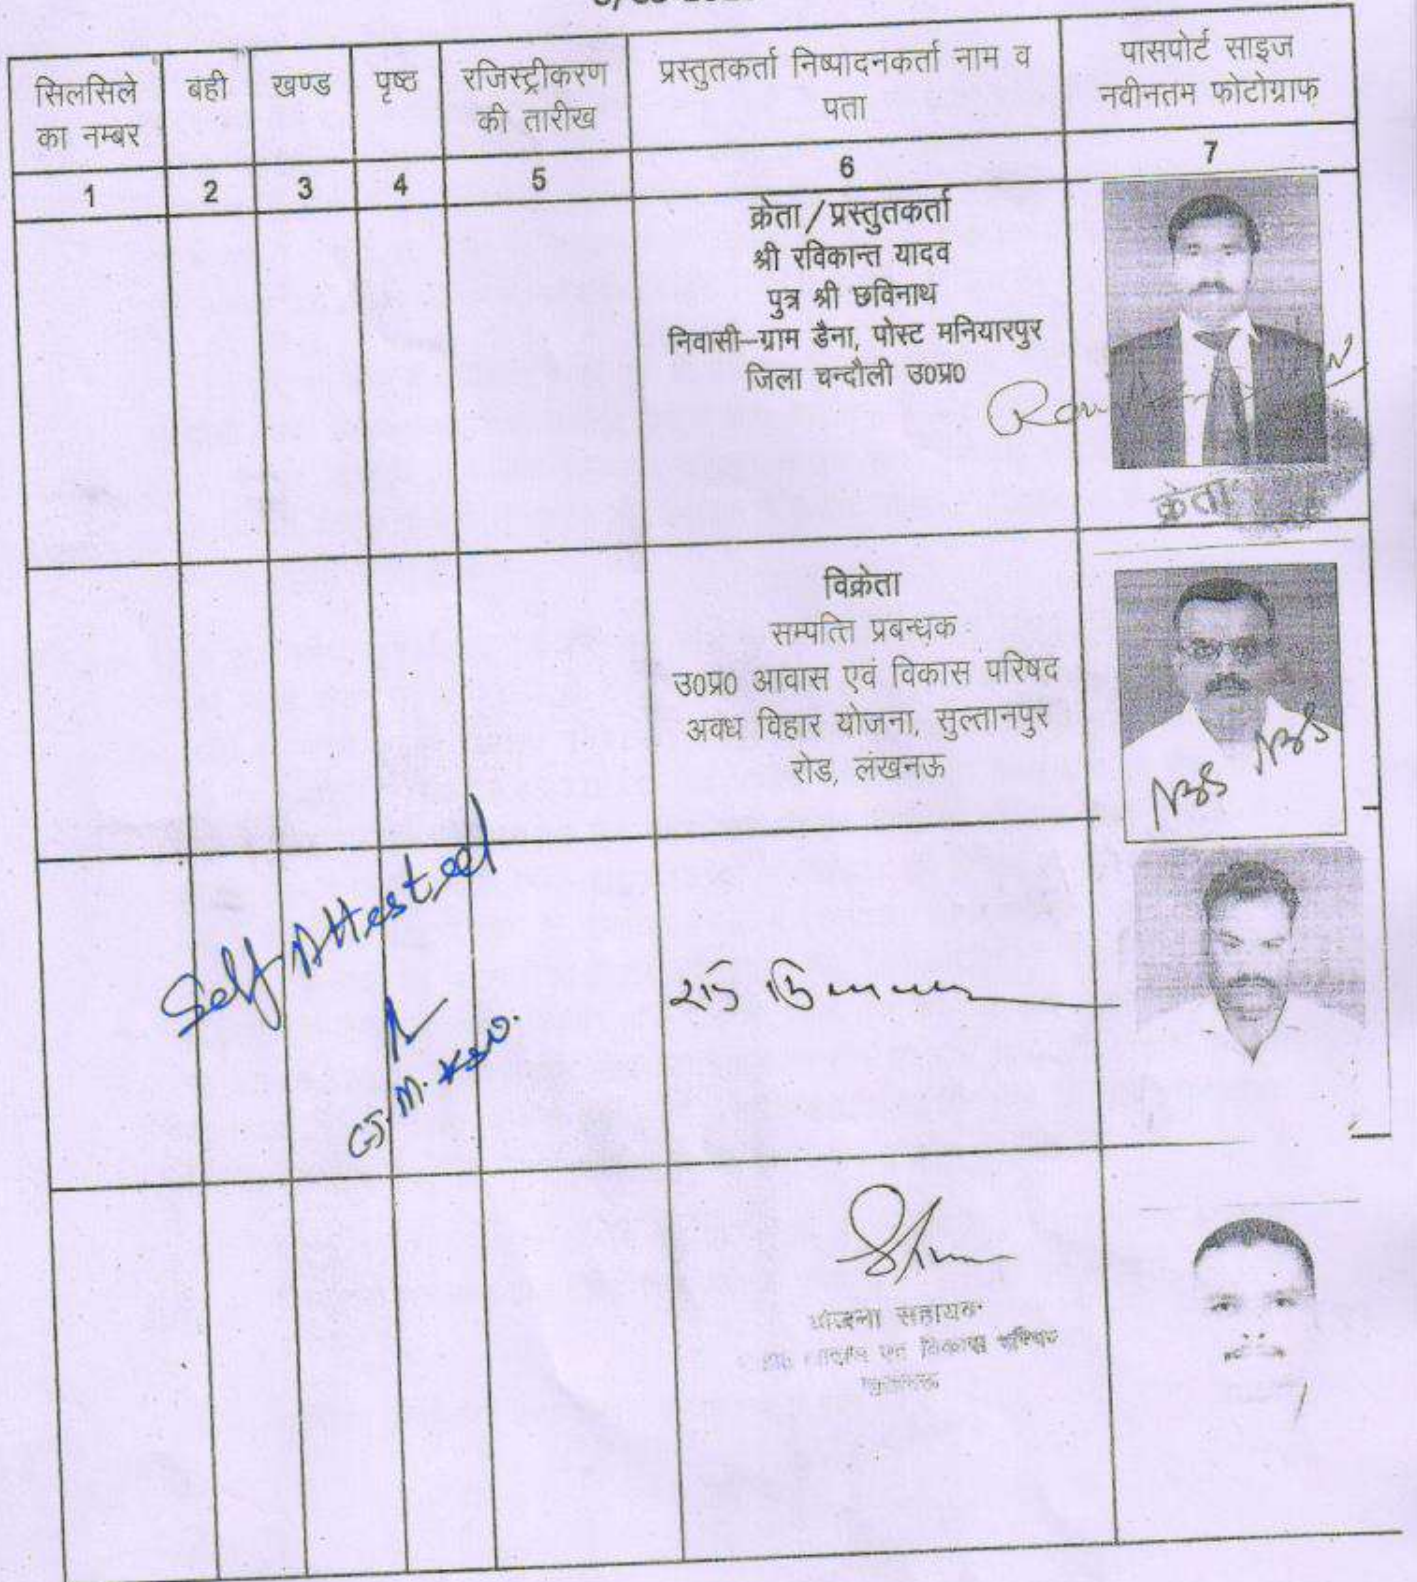 सिलसिले
का नम्बर
बही
खण्ड
पृष्ठ
रजिस्ट्रीकरण
की तारीख
प्रस्तुतकर्ता निष्पादनकर्ता नाम व
पता
पासपोर्ट साइज
नवीनतम फोटोग्राफ
1
2
3
4
5
6
7
क्रेता/प्रस्तुतकर्ता
श्री रविकान्त यादव
पुत्र श्री छविनाथ
निवासी–ग्राम डैना, पोस्ट मनियारपुर
जिला चन्दौली उ0प्र0
क्रेता
विक्रेता
सम्पत्ति प्रबन्धक
उ0प्र0 आवास एवं विकास परिषद
अवध विहार योजना, सुल्तानपुर
रोड, लखनऊ
Self Attested
योजना सहायक
एवं विकास परिषद